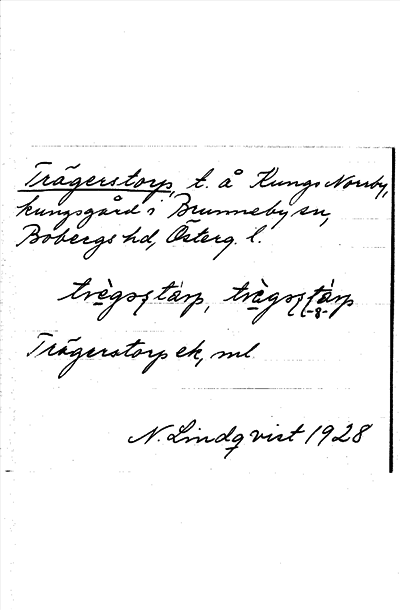 Trägerstorp, t. å Kungs Norrby,
kungsgård i Brunneby sn,
Bobergs hd, Österg. l.
Trägerstorp ek, ml
N. Lindqvist 1928